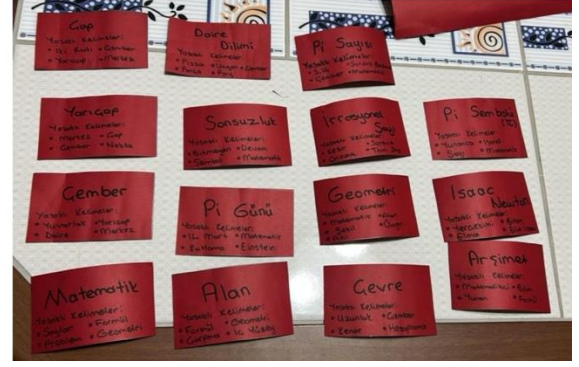 Çap
Yasaklı Kelimeler:
• İki Katı • Çember
• Yarıçap • Merkez
Daire
Dilimi
Yasaklı Kelimeler
• Pizza
• Parça
Pi Sayısı
Yasaklı Kelimeler:
• 3,14
• Çember • Matematik
Yarıçap
Yasaklı Kelimeler:
• Merkez • Çap
• Çember • Nokta
Sonsuzluk
Yasaklı Kelimeler:
• Bitmeyen • Devam
• Sembol • Matematik
İrrasyonel
Sayı
Yasaklı Kelimeler:
• Kesir
Pi Sembolü
(π)
Yasaklı Kelimeler
• Yunanca
• Sayı • Matematik
Çember
Yasaklı Kelimeler:
• Yuvarlak • Yarıçap
• Daire • Merkez
Pi Günü
Yasaklı Kelimeler:
• 14 Mart • Matematik
• Kutlama • Einstein
Geometri
Yasaklı Kelimeler:
• Matematik • Alan
• Şekil
Isaac
Newton
Yasaklı Kelimeler:
• Yerçekimi
• Elma
Matematik
Yasaklı Kelimeler:
• Sayılar • Formül
• Problem • Geometri
Alan
Yasaklı Kelimeler:
• Formül • Geometri
• Çarpma • İç Yüzey
Çevre
Yasaklı Kelimeler:
• Uzunluk • Çember
• Kenar • Hesaplama
Arşimet
Yasaklı Kelimeler:
• Matematikçi
• Yunan